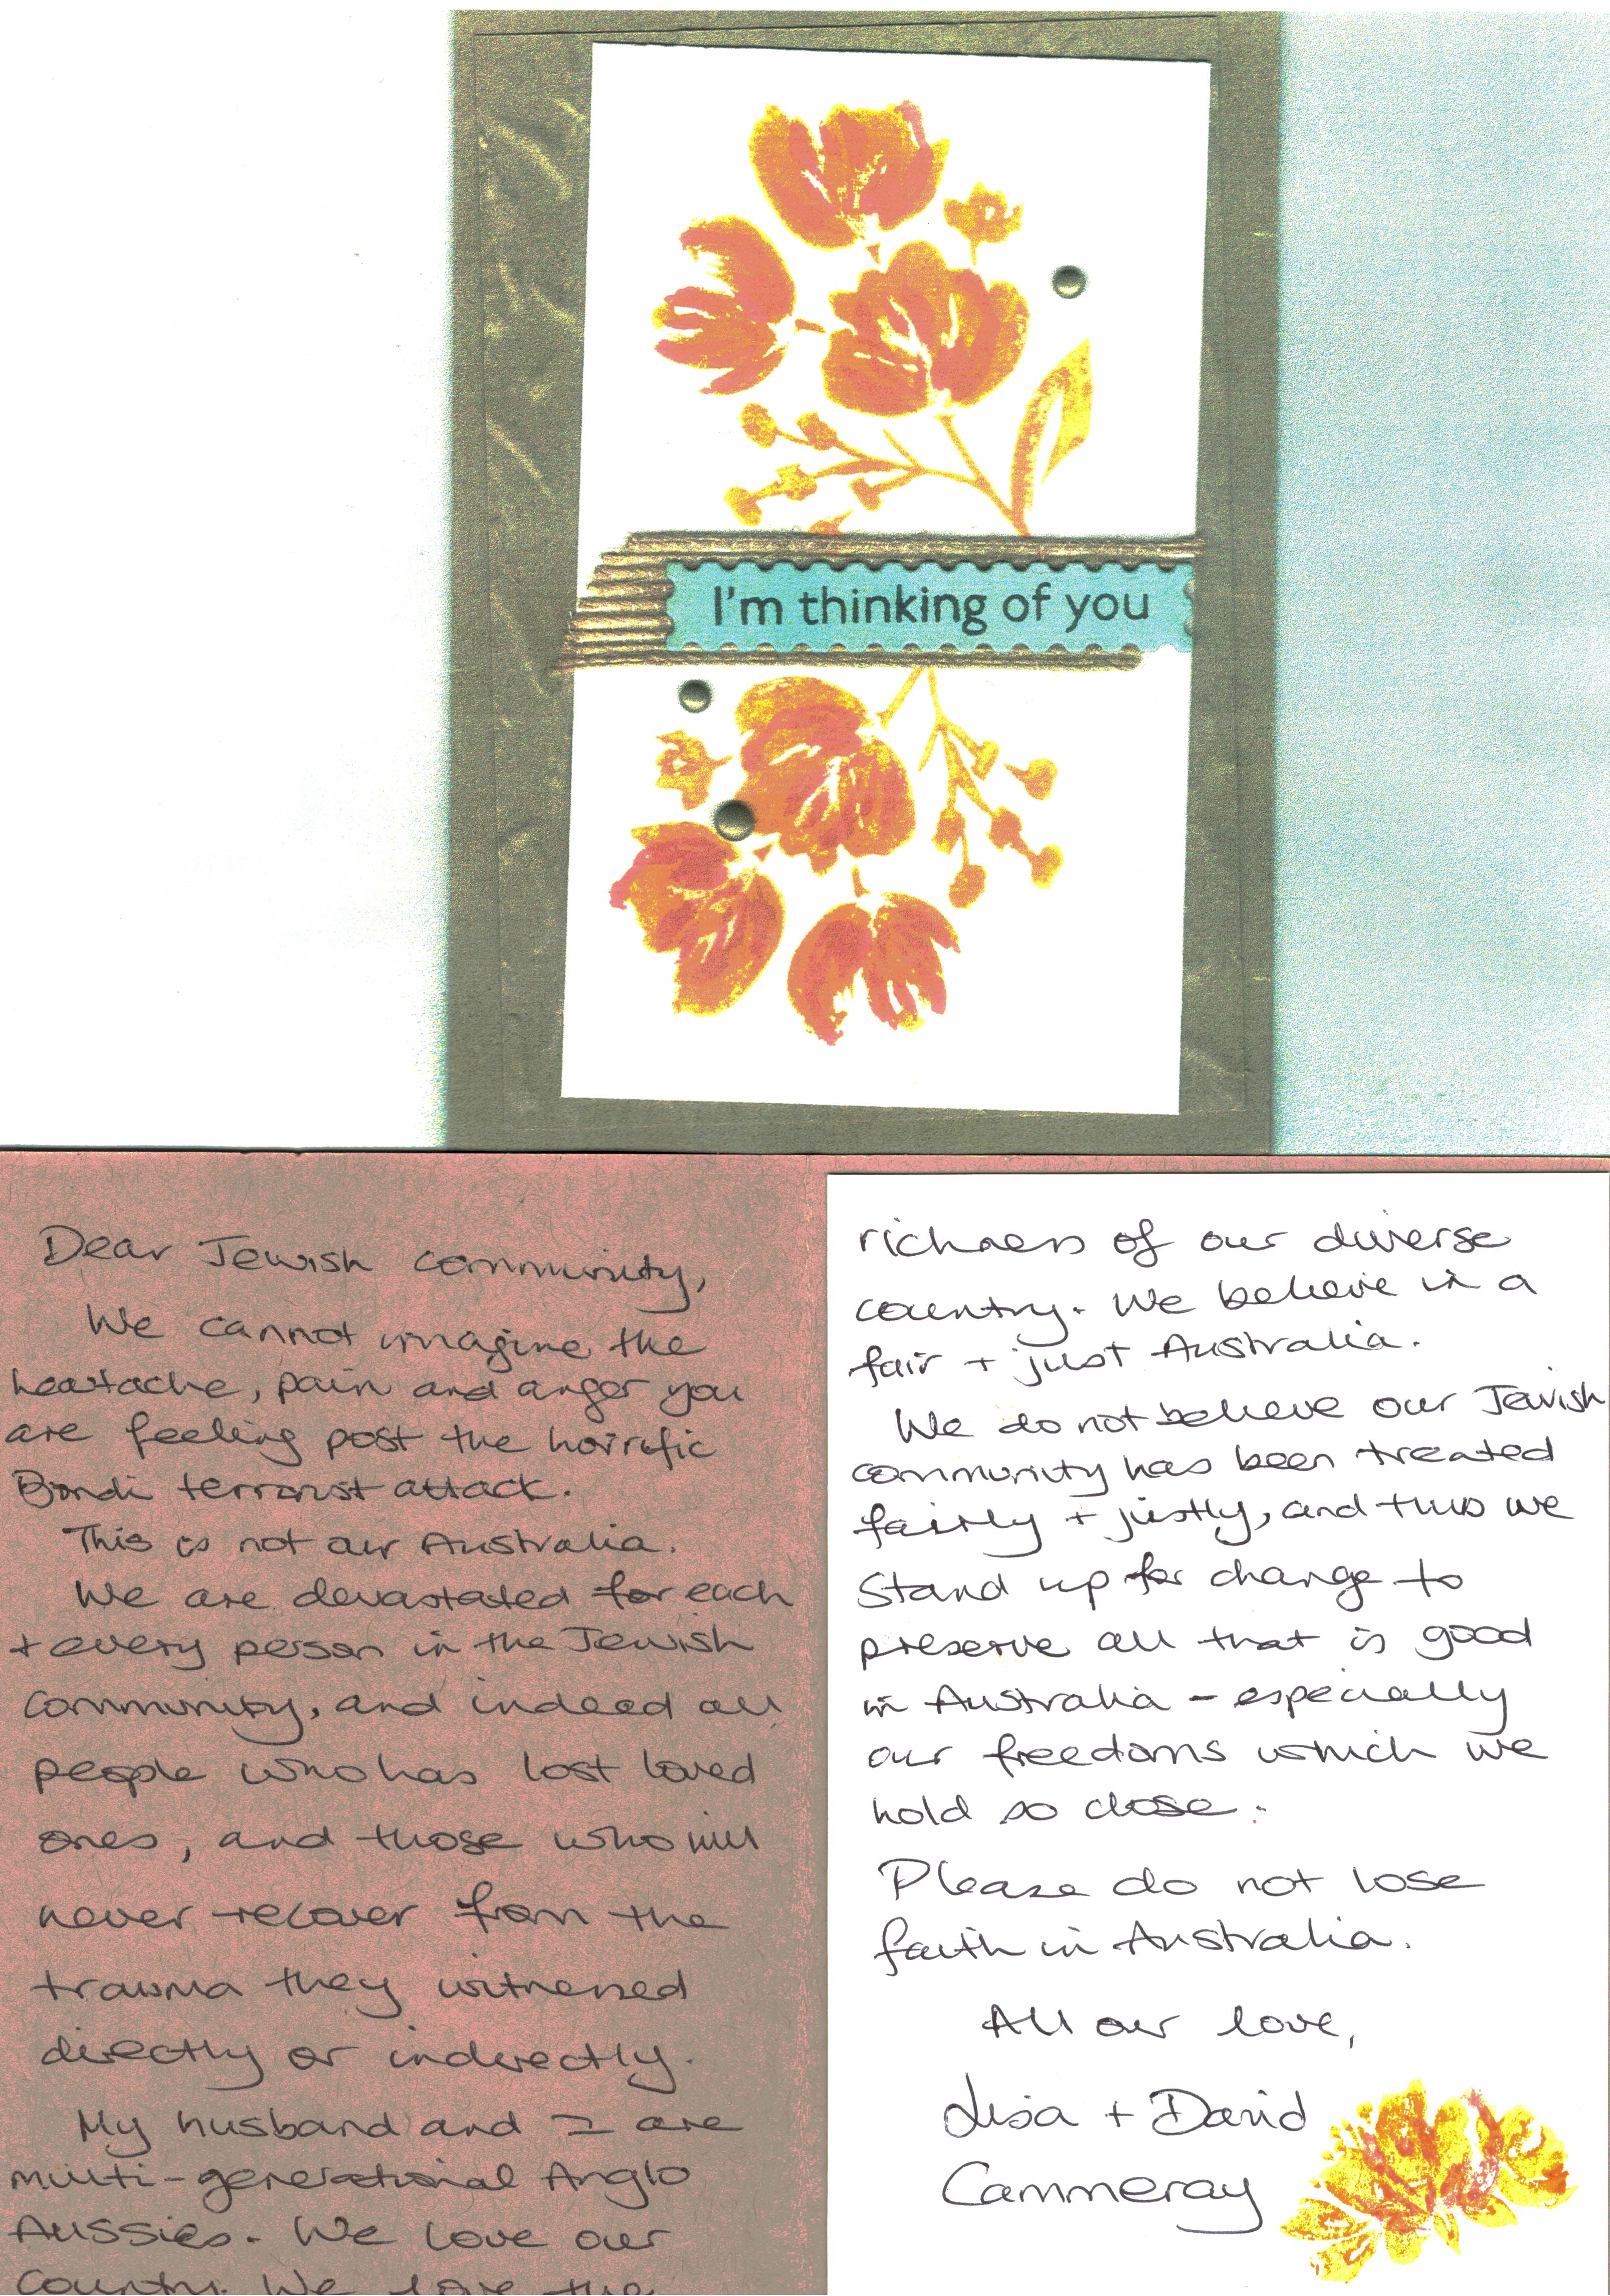 I'm thinking of you
Dear Jewish community,
We cannot imagine the
heartache, pain and anger you
are feeling post the horrific
Bondi terrorist attack.
This is not our Australia.
We are devastated for each
+ every person in the Jewish
community, and indeed all
people who has lost loved
ones, and those who will
never recover from the
trauma they witnessed
directly or indirectly.
My husband and I are
multi-generational Anglo
Aussies. We love our
country. We love the
richness of our diverse
country. We believe in a
fair + just Australia.
We do not believe our Jewish
community has been treated
fairly + justly, and thus we
stand up for change to
preserve all that is good
in Australia - especially
our freedoms which we
hold so close.
Please do not lose
faith in Australia.
All our love,
Lisa + David
Cammeray